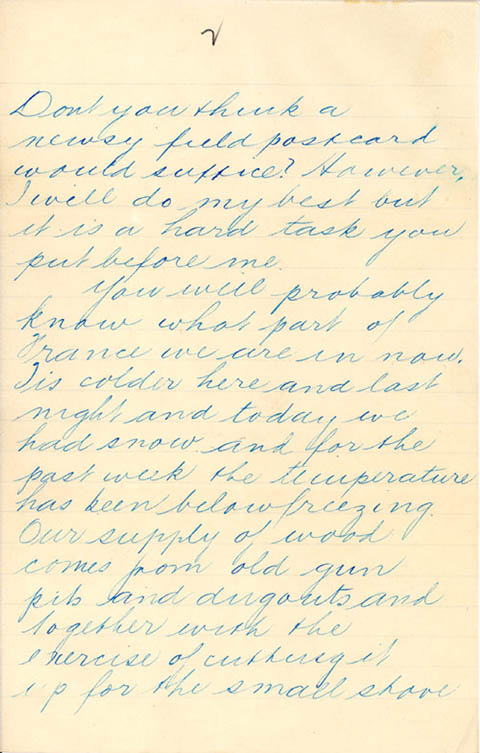 2
Dont you think a
newsy field postcard
would suffice? However,
I will do my best but
it is a hard task you
put before me.
You will probably
know what part of
France we are in now.
Tis colder here and last
night and today we
had snow and for the
past week the temperature
has been below freezing.
Our supply of wood
comes from old gun
pits and dugouts and
together with the
exercise of cutting it
up for the small stove